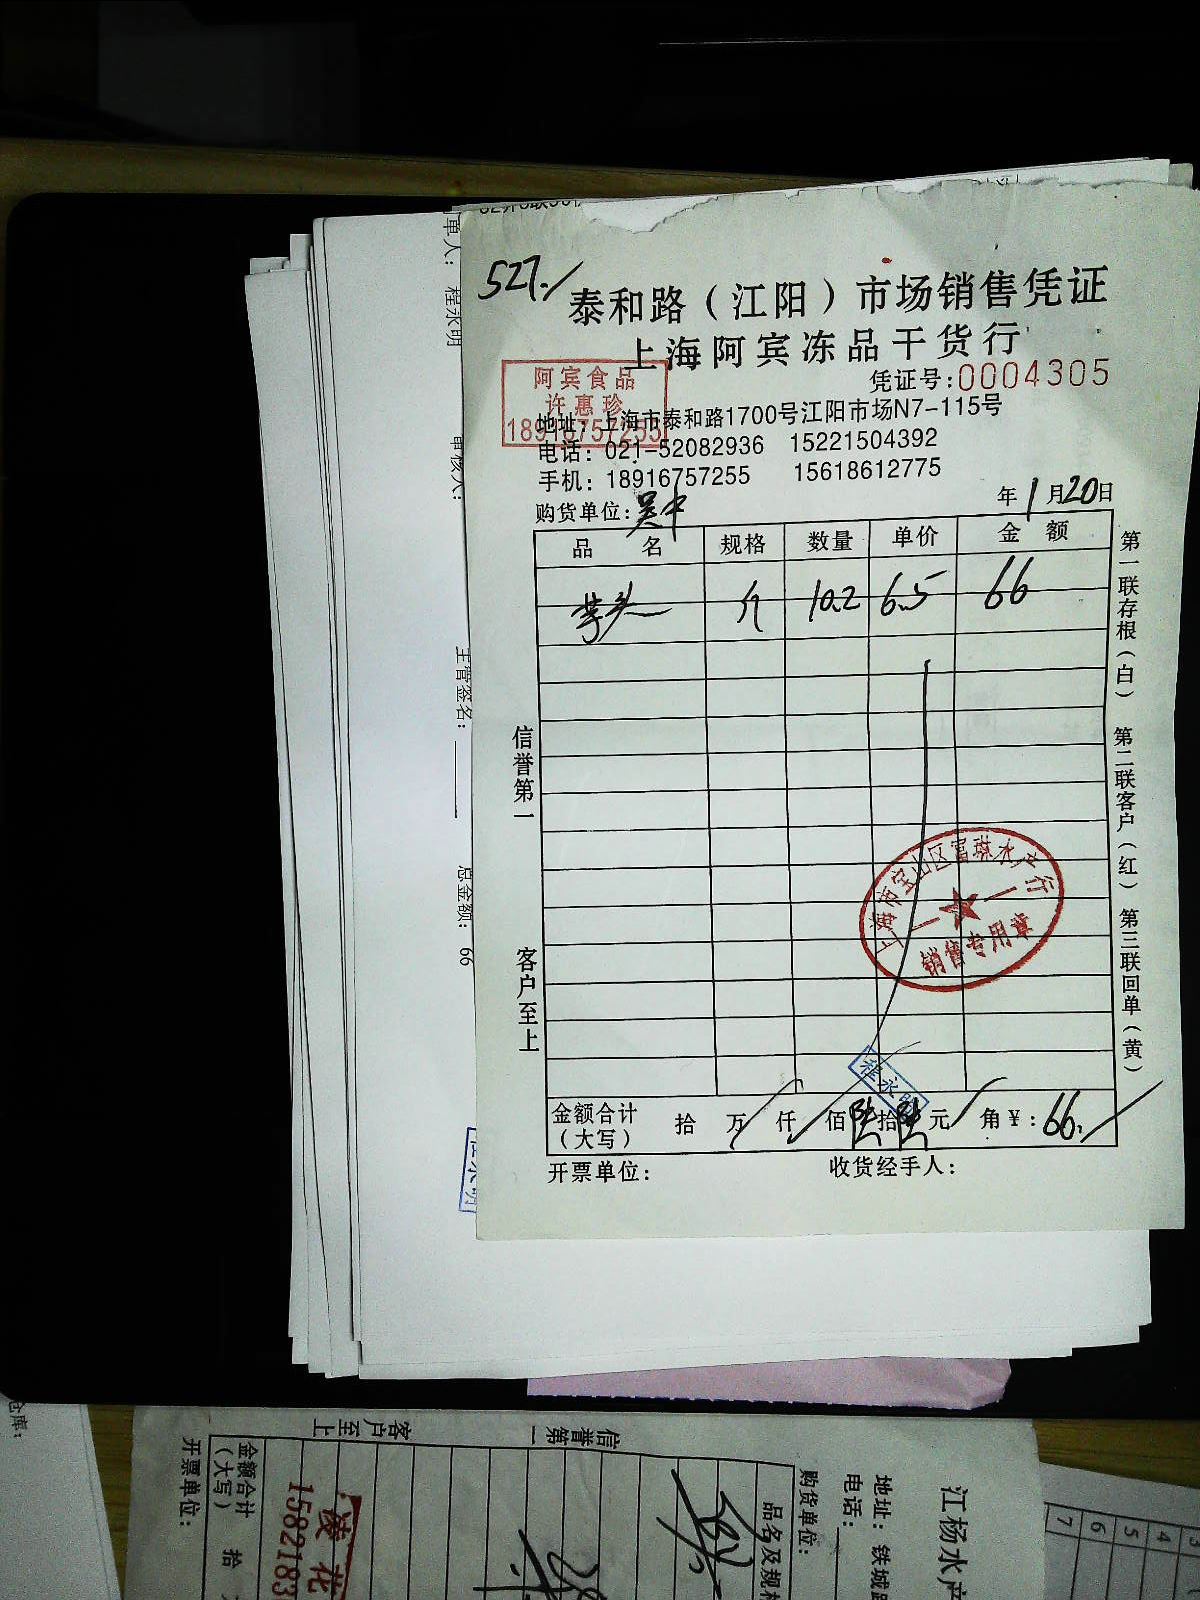 527.
泰和路（江阳）市场销售凭证
上海阿宾冻品干货行
凭证号:0004305
阿宾食品
许惠珍
18916757255
地址：上海市泰和路1700号江阳市场N7-115号
电话：021-52082936 15221504392
手机：18916757255 15618612775
购货单位:吴中 年1月20日
品 名 规格 数量 单价 金 额
芋头 斤 10.2 6.5 66
信誉第一 客户至上
第一联存根（白） 第二联客户（红） 第三联回单（黄）
上海市宝山区富琪水产行
销售专用章
程永明
金额合计（大写） 拾 万 仟 佰 陆 拾 陆 元 角 ¥：66.
开票单位: 收货经手人:
单人: 程永明
审核人:
主管签名:
总金额: 66
江杨水产
地址：铁城路
电话：
购货单位:
品名及规格
信誉第一 客户至上
金额合计（大写） 拾
开票单位:
凌花
1582183
仓库:
4
5
6
7